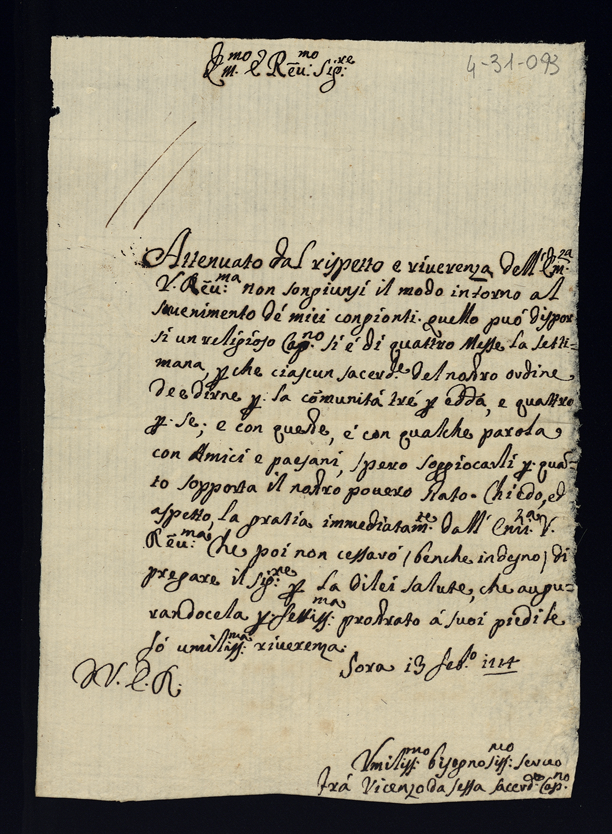 4-31-093
Em.mo e Reu.mo Sig.re
Attenuato dal rispetto e riuerenza dell' Em.za
V. Reu.ma non songiunsi il modo intorno al
souenimento dé miei congionti. quello puó dispor
si un religioso Cap.no si é di quattro Messe la setti-
mana, p che ciascun sacerd.te del nostro ordine
deedirne p. la comunitá tré p edda, e quattro
p. se; e con queste, é con qualche parola
con Amici e paesani, spero soggiocarli p. quan-
to sopporta il nostro pouero stato. Chiedo, ed
aspetto, la gratia immediatam.te dall' Em.za V.
Reu.ma Che poi non cessaró (benche indegno) di
pregare il sig.re p la dilei salute, che augu-
randocela p. prostrato á suoi piedi le
fó umiliss.ma riuerenza.
Sora 13 feb.o
D V. E. R.
Vmiliss.mo bisognosiss.mo seruo
frá Vicenzo da sessa sacerd.te Cap.no